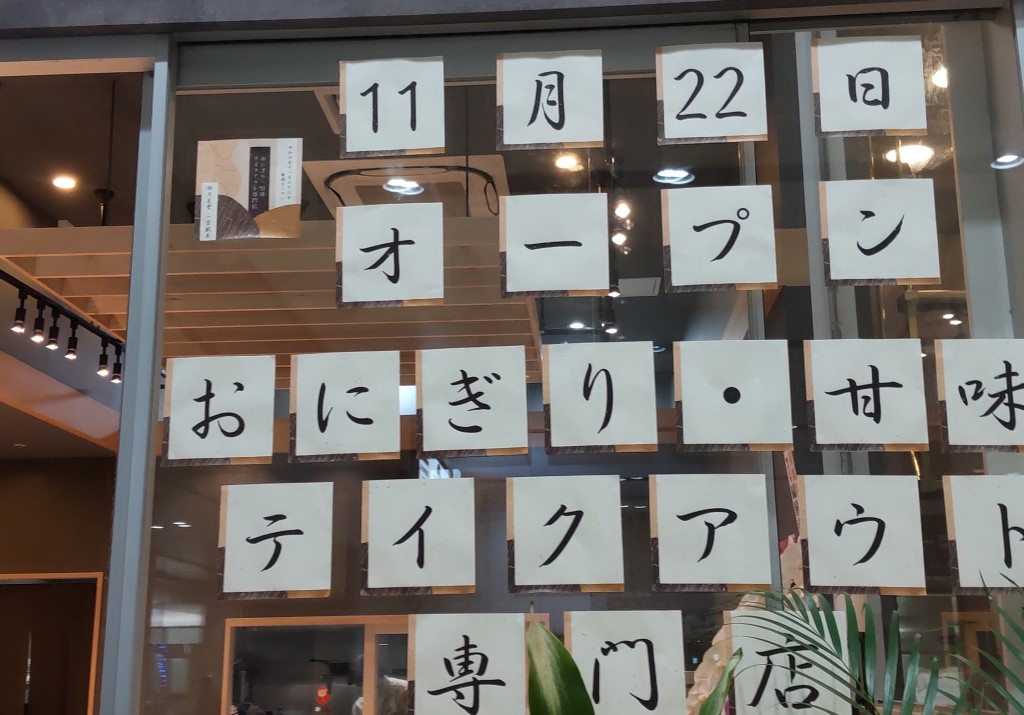 11月22日
オープン
おにぎり・甘味
テイクアウト
専門店